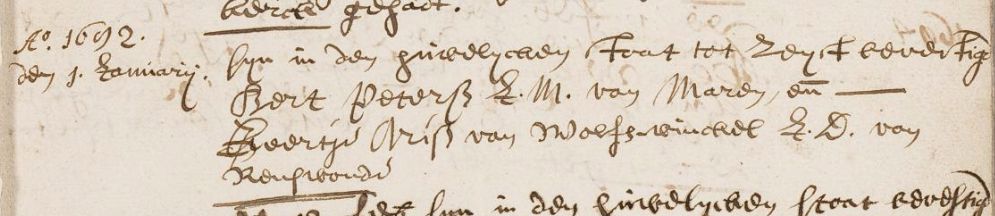 kercke gehadt.
Ao. 1692.
den 1. January. syn in den huwelycken staat tot Zeyst bevestig
Gert Peterss J. M. van Maren, en̄
Geertje Ariss van Wolfswinckel J. D. van
Renswoude
syn in den huwelycken staat bevestig